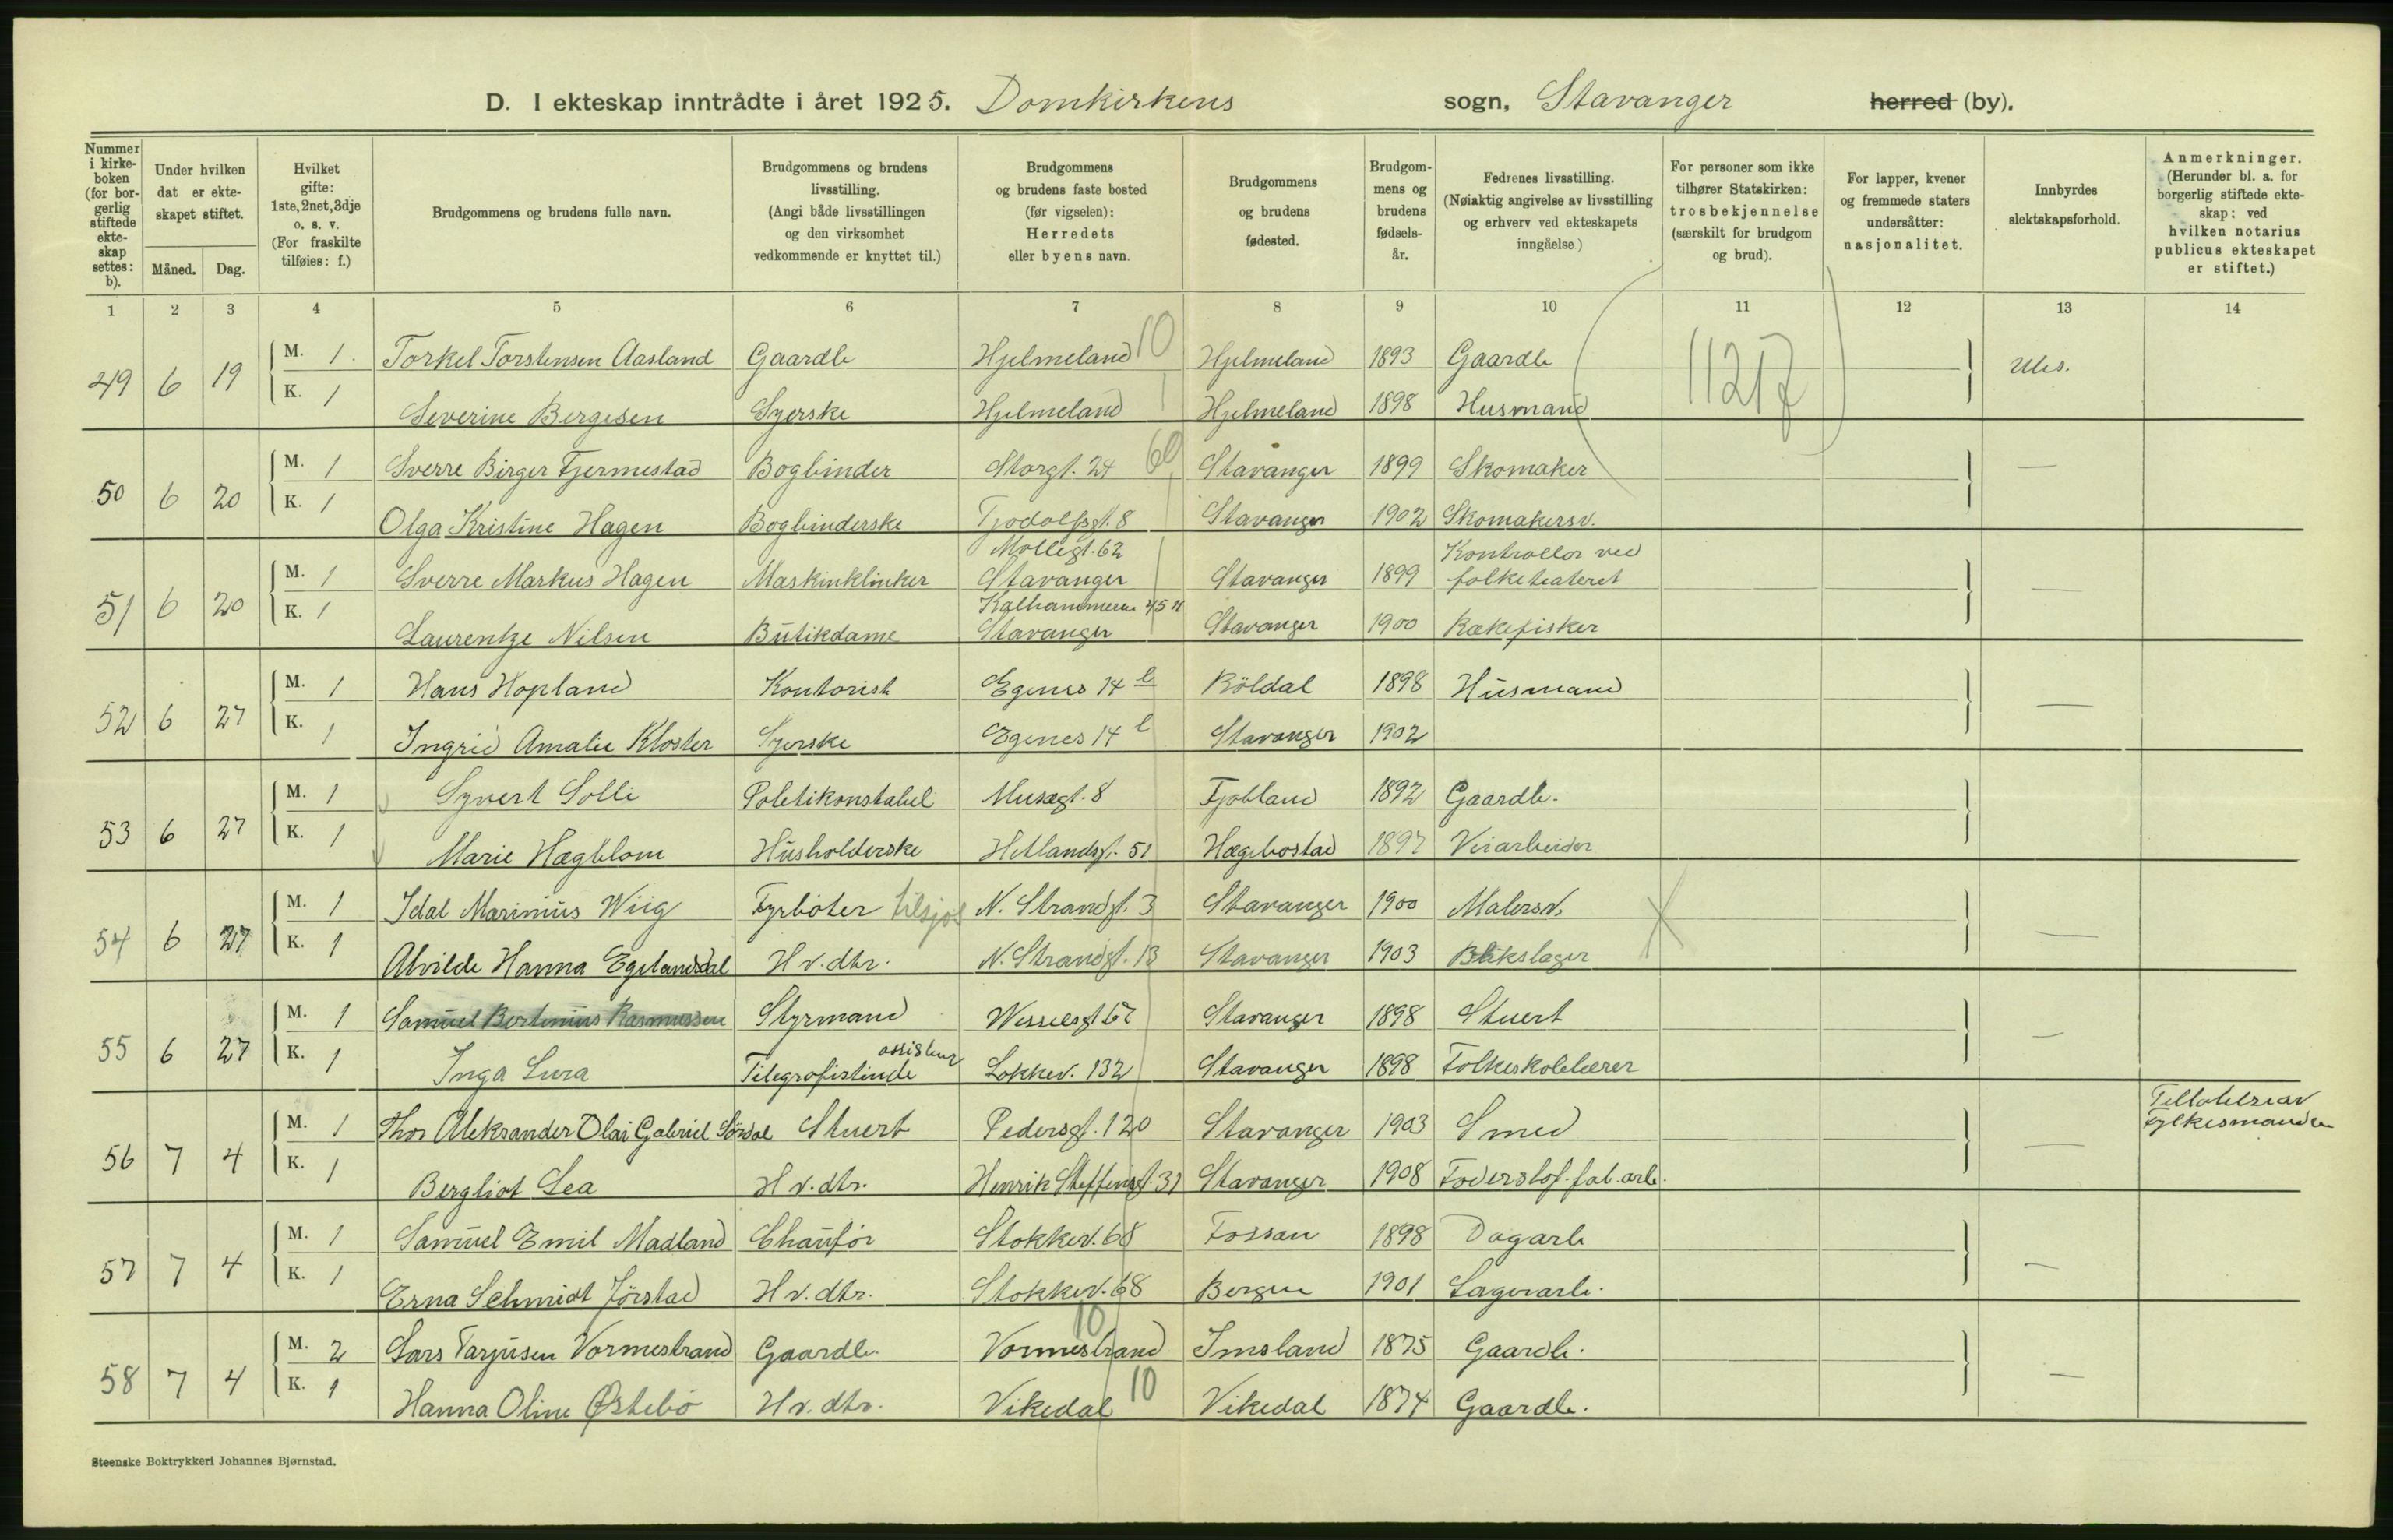 D. I ekteskap inntrådte i året 1925. Domkirkens sogn, Stavanger herred (by).
Nummer i kirkeboken (for borgerlig stiftede ekteskap settes: b).
Under hvilken dat er ekteskapet stiftet.
Måned. Dag.
Hvilket gifte: 1ste, 2net, 3dje o. s. v. (For fraskilte tilføies: f.)
Brudgommens og brudens fulle navn.
Brudgommens og brudens livsstilling. (Angi både livsstillingen og den virksomhet vedkommende er knyttet til.)
Brudgommens og brudens faste bosted (før vigselen): Herredets eller byens navn.
Brudgommens og brudens fødested.
Brudgommens og brudens fødselsår.
Fedrenes livsstilling. (Nøiaktig angivelse av livsstilling og erhverv ved ekteskapets inngåelse.)
For personer som ikke tilhører Statskirken: trosbekjennelse (særskilt for brudgom og brud).
For lapper, kvener og fremmede staters undersåtter: nasjonalitet.
Innbyrdes slektskapsforhold.
Anmerkninger. (Herunder bl. a. for borgerlig stiftede ekteskap: ved hvilken notarius publicus ekteskapet er stiftet.)
1 2 3 4 5 6 7 8 9 10 11 12 13 14
49 6 19 M. 1. Torkel Torstensen Aasland Gaardb Hjelmeland 10 Hjelmeland 1893 Gaardb
K. 1 Severine Bergesen Syerske Hjelmeland Hjelmeland 1898 Husmand
50 6 20 M. 1 Sverre Birger Fjermestad Bogbinder Storgt. 24 Stavanger 1899 Skomaker —
K. 1 Olga Kristine Hagen Bogbinderske Tjodolfsgt. 8 Stavanger 1902 Skomakersv.
51 6 20 M. 1 Sverre Markus Hagen Maskinklinker Møllegt. 62 Stavanger Stavanger 1899 Kontrollør ved folketeateret —
K. 1 Laurentze Nilsen Butikdame Kalhammeren Stavanger Stavanger 1900 Rækefisker
52 6 27 M. 1 Hans Hopland Kontorist Egenes 14 b Röldal 1898 Husmand —
K. 1 Ingrid Amalie Kloster Syerske Egenes 14 b Stavanger 1902
53 6 27 M. 1 Syvert Solli Politikonstabel Musægt. 8 Fjotland 1892 Gaardb.
K. 1 Marie Hægblom Husholderske Hetlandsgt. 51 Hægebostad 1897 Veiarbeider
54 6 27 M. 1 Idal Marinius Wiig Fyrbøter tilsjøs N. Strandgt. 3 Stavanger 1900 Malersv. —
K. 1 Alvilde Hanna Egelandsdal H v. dtr. N. Strandgt. 13 Stavanger 1903 Blikslager
55 6 27 M. 1 Samuel Bertinius Rasmussen Styrmand Wesselsgt 67 Stavanger 1898 Stuert —
K. 1 Inga Lura Telegrafistinde Løkkev. 132 Stavanger 1898 Folkeskolelærer
56 7 4 M. 1 Thor Aleksander Olai Gabriel Sördal Stuert Pedersgt. 120 Stavanger 1903 Smed — Tillatelse av Fylkesmanden
K. 1 Bergliot Lea H v. dtr. Henrik Steffensgt. 31 Stavanger 1908 Foderstof. fab. arb.
57 7 4 M. 1 Samuel Emil Madland Chauför Stokkev. 68 Fossan 1898 Dagarb —
K. 1 Erna Schmidt Jörstad H v. dtr. Stokkev. 68 Bergen 1901 Lagerarb.
58 7 4 M. 2 Lars Tarjusen Vormestrand Gaardb. Vormestrand 10 Imsland 1875 Gaardb. —
K. 1 Hanna Oline Østebö H v. dtr. Vikedal 10 Vikedal 1874 Gaardb.
Steenske Boktrykkeri Johannes Bjørnstad.